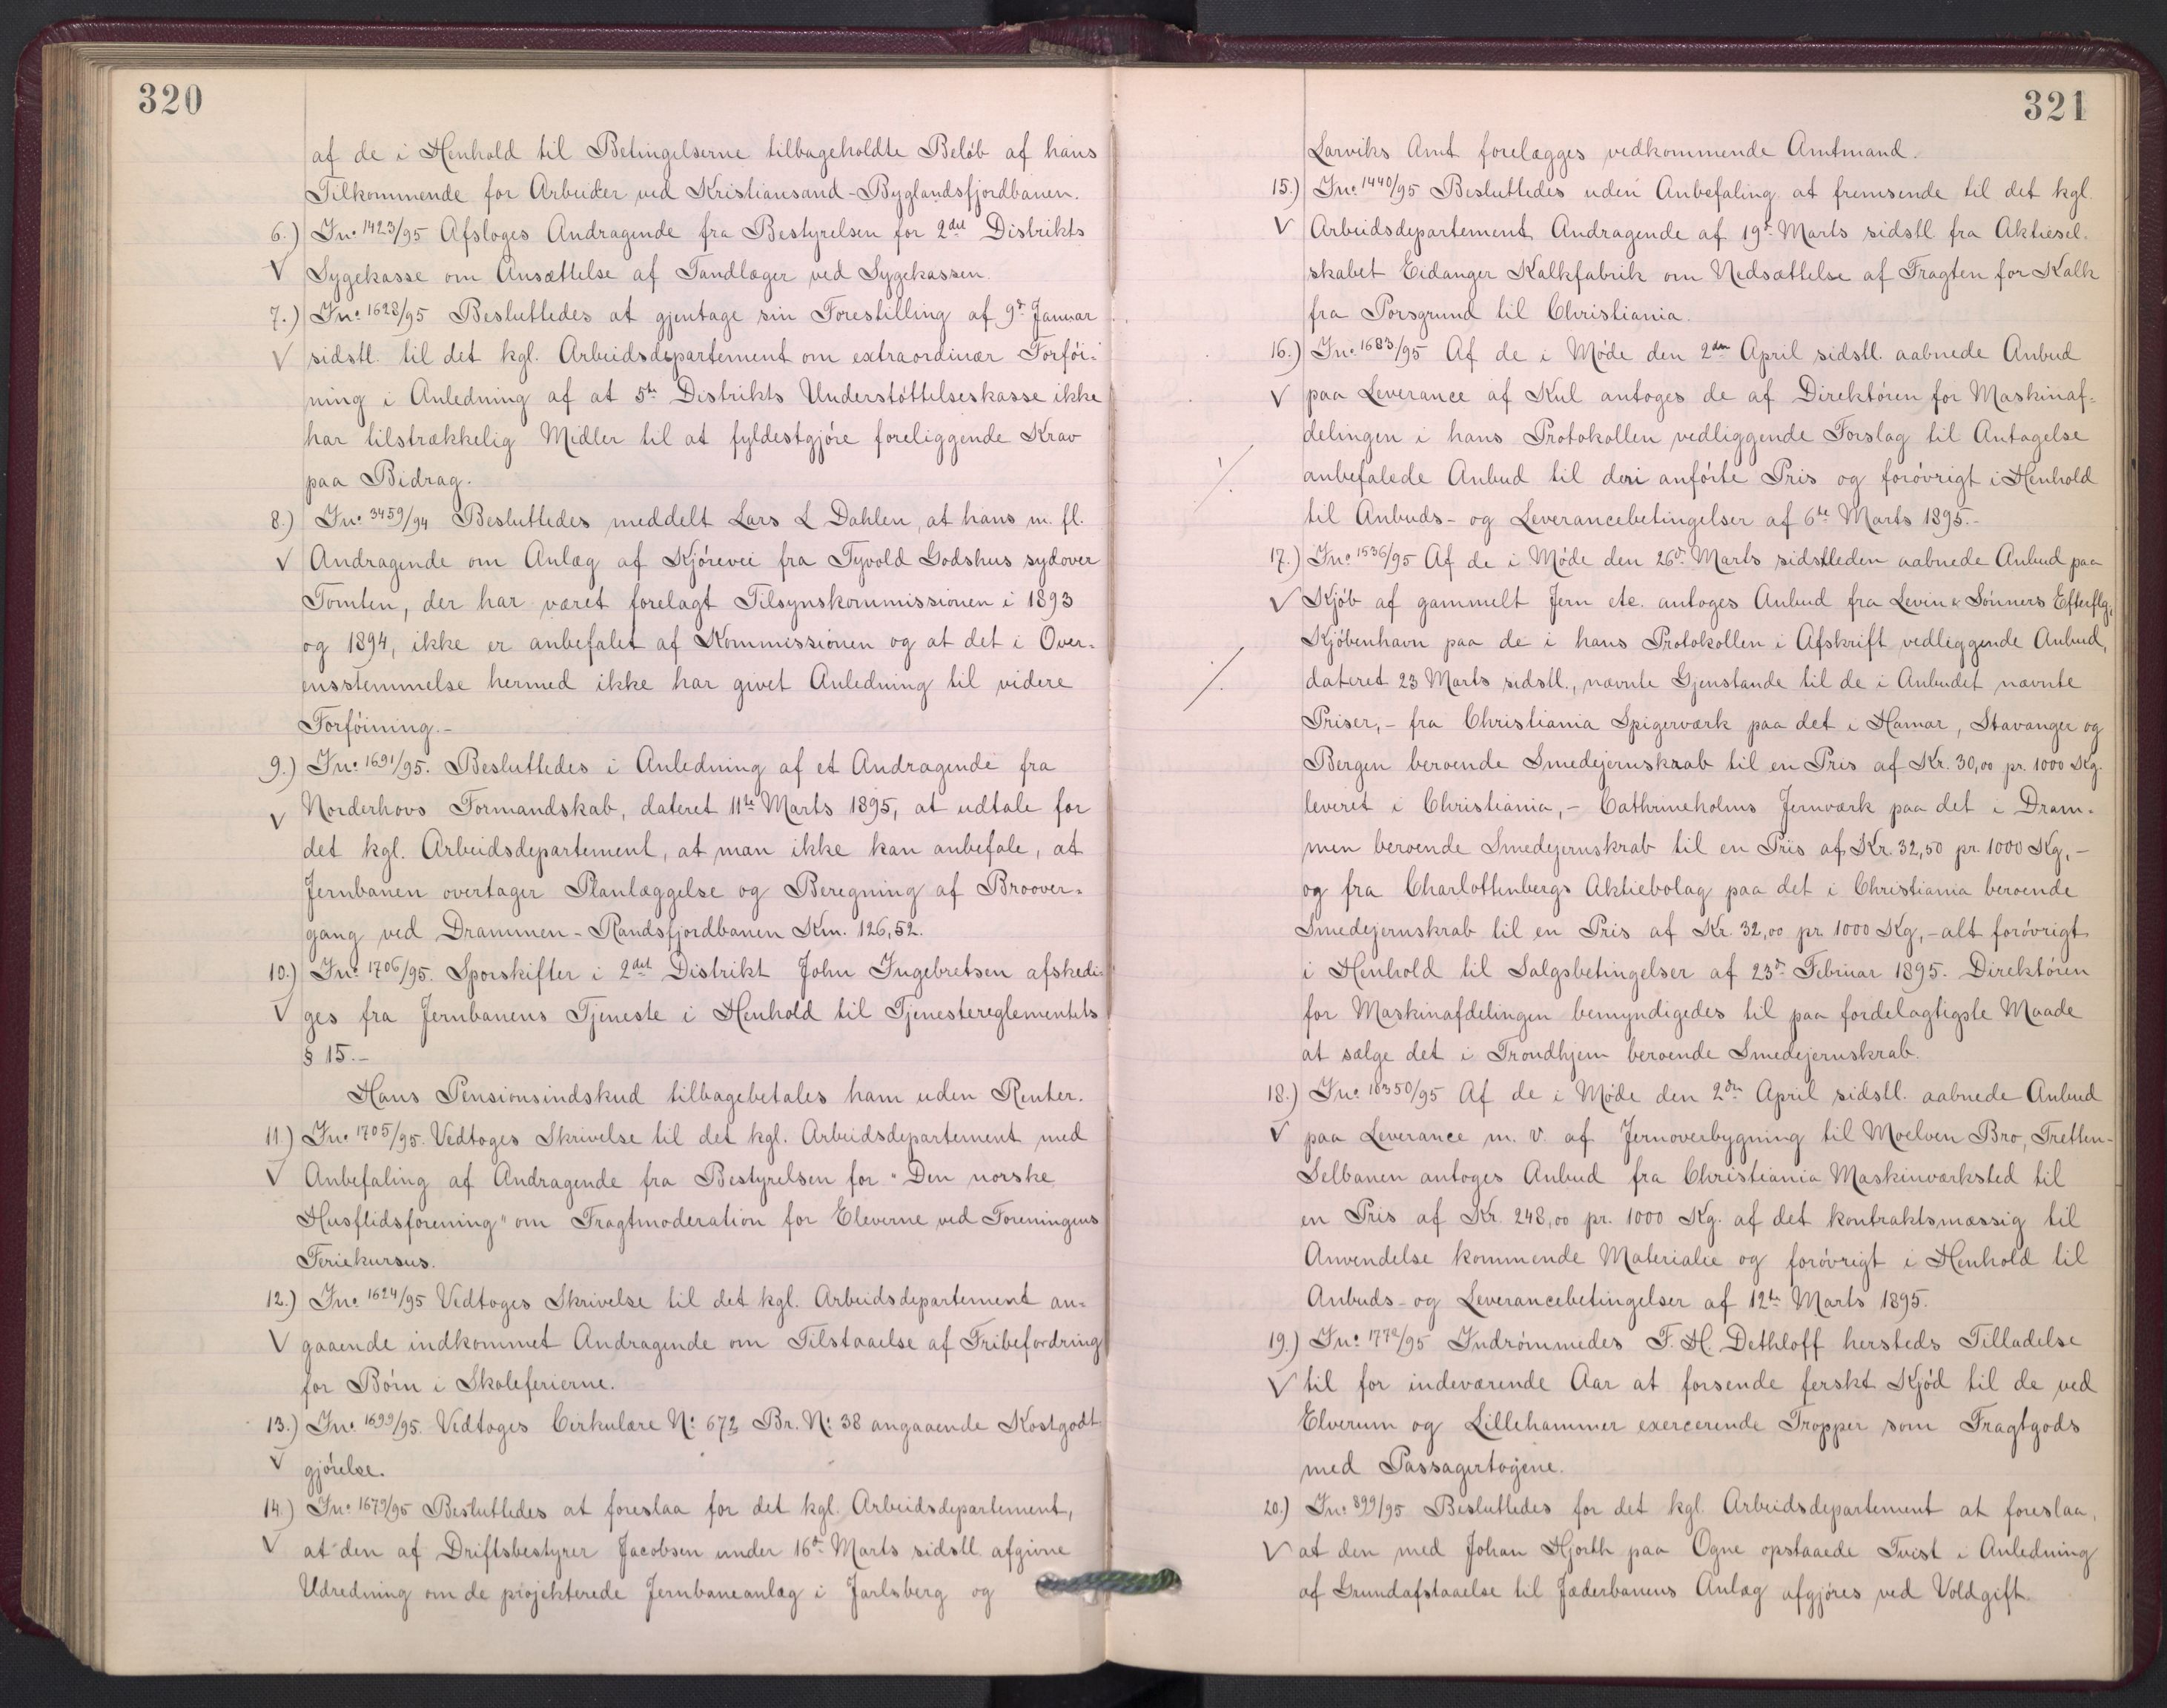 320
af de i Henhold til Betingelserne tilbageholdte Beløb af hans
Tilkommende for Arbeider ved Kristiansand-Byglandsfjordbanen.
6.) Jn: 1423/95 Afsloges Andragende fra Bestyrelsen for 2det Distrikts
V Sygekasse om Ansættelse af Tandlæger ved Sygekassen.
7.) Jn: 1628/95 Besluttedes at gjentage sin Forestilling af 9d: Januar
V sidstl. til det kgl. Arbeidsdepartement om extraordinær Forføi=
ning i Anledning af at 5te Distrikts Understøttelseskasse ikke
har tilstrækkelig Midler til at fyldestgjøre foreliggende Krav
paa Bidrag.
8.) Jn: 3459/94 Besluttedes meddelt Lars L Dahlen, at hans m. fl.
V Andragende om Anlæg af Kjørevei fra Tyvold Godshus sydover
Tomten, der har været forelagt Tilsynskommissionen i 1893
og 1894, ikke er anbefalet af Kommissionen og at det i Over=
ensstemmelse hermed ikke har givet Anledning til videre
Forføining.-
9.) Jn: 1691/95. Besluttedes i Anledning af et Andragende fra
V Norderhovs Formandskab, dateret 11te Marts 1895, at udtale for
det kgl. Arbeidsdepartement, at man ikke kan anbefale, at
Jernbanen overtager Planlæggelse og Beregning af Broover=
gang ved Drammen-Randsfjordbanen Km. 126,52.
10.) Jn: 1706/95. Sporskifter i 2det Distrikt John Ingebretsen afskedi=
V ges fra Jernbanens Tjeneste i Henhold til Tjenestereglementets
§ 15.-
Hans Pensionsindskud tilbagebetales ham uden Renter.
11.) Jn: 1705/95. Vedtoges Skrivelse til det kgl. Arbeidsdepartement med
V Anbefaling af Andragende fra Bestyrelsen for "Den norske
Husflidsforening" om Fragtmoderation for Eleverne ved Foreningens
Feriekursus.
12.) Jn: 1624/95 Vedtoges Skrivelse til det kgl. Arbeidsdepartement an=
V gaaende indkommet Andragende om Tilstaaelse af Fribefordring
for Børn i Skoleferierne.
13.) Jn: 1699/95. Vedtoges Cirkulære N: 672 Br. N: 38 angaaende Kostgodt
V gjørelse.
14.) Jn: 1679/95 Besluttedes at foreslaa for det kgl. Arbeidsdepartement,
V at den af Driftsbestyrer Jacobsen under 16d: Marts sidstl. afgivne
Udredning om de projekterede Jernbaneanlæg i Jarlsberg og
321
Larviks Amt forelægges vedkommende Amtmand.
15.) Jn: 1440/95 Besluttedes uden Anbefaling at fremsende til det kgl.
V Arbeidsdepartement Andragende af 19d: Marts sidstl. fra Aktiesel=
skabet Eidanger Kalkfabrik om Nedsættelse af Fragten for Kalk
fra Porsgrund til Christiania.
16.) Jn: 1683/95 Af de i Møde den 2den April sidstl. aabnede Anbud
V paa Leverance af Kul antoges de af Direktøren for Maskinaf=
delingen i hans Protokollen vedliggende Forslag til Antagelse
anbefalede Anbud til deri anførte Pris og forøvrigt i Henhold
til Anbuds- og Leverancebetingelser af 6te Marts 1895.-
17.) Jn: 1536/95 Af de i Møde den 26d: Marts sidstleden aabnede Anbud paa
V Kjøb af gammelt Jern etc. antoges Anbud fra Levin & Sønners Efterflg,
Kjøbenhavn paa de i hans Protokollen i Afskrift vedliggende Anbud,
dateret 23 Marts sidstl., nævnte Gjenstande til de i Anbudet nævnte
Priser,- fra Christiania Spigerværk paa det i Hamar, Stavanger og
Bergen beroende Smedejernskrab til en Pris af Kr. 30,00 pr. 1000 Kg.
leveret i Christiania,- Cathrineholms Jernværk paa det i Dram=
men beroende Smedejernskrab til en Pris af Kr. 32,50 pr. 1000 Kg,-
og fra Charlottenbergs Aktiebolag paa det i Christiania beroende
Smedejernskrab til en Pris af Kr. 32,00 pr. 1000 Kg,- alt forøvrigt
i Henhold til Salgsbetingelser af 23d: Februar 1895. Direktøren
for Maskinafdelingen bemyndigedes til paa fordelagtigste Maade
at sælge det i Trondhjem beroende Smedejernskrab.
18.) Jn: 10350/95 Af de i Møde den 2den April sidstl. aabnede Anbud
V paa Leverance m. v. af Jernoverbygning til Moelven Bro, Tretten-
Selbanen antoges Anbud fra Christiania Maskinværksted til
en Pris af Kr. 248,00 pr. 1000 Kg. af det kontraktsmæssig til
Anvendelse kommende Materiale og forøvrigt i Henhold til
Anbuds- og Leverancebetingelser af 12te Marts 1895.
19.) Jn: 1772/95 Indrømmedes F. H. Dethloff hersteds Tilladelse
V til for indeværende Aar at forsende ferskt Kjød til de ved
Elverum og Lillehammer exercerende Tropper som Fragtgods
med Passagertogene.
20.) Jn: 899/95 Besluttedes for det kgl. Arbeidsdepartement at foreslaa,
V at den med Johan Hjorth paa Ogne opstaaede Tvist i Anledning
af Grundafstaaelse til Jæderbanens Anlæg afgjøres ved Voldgift.